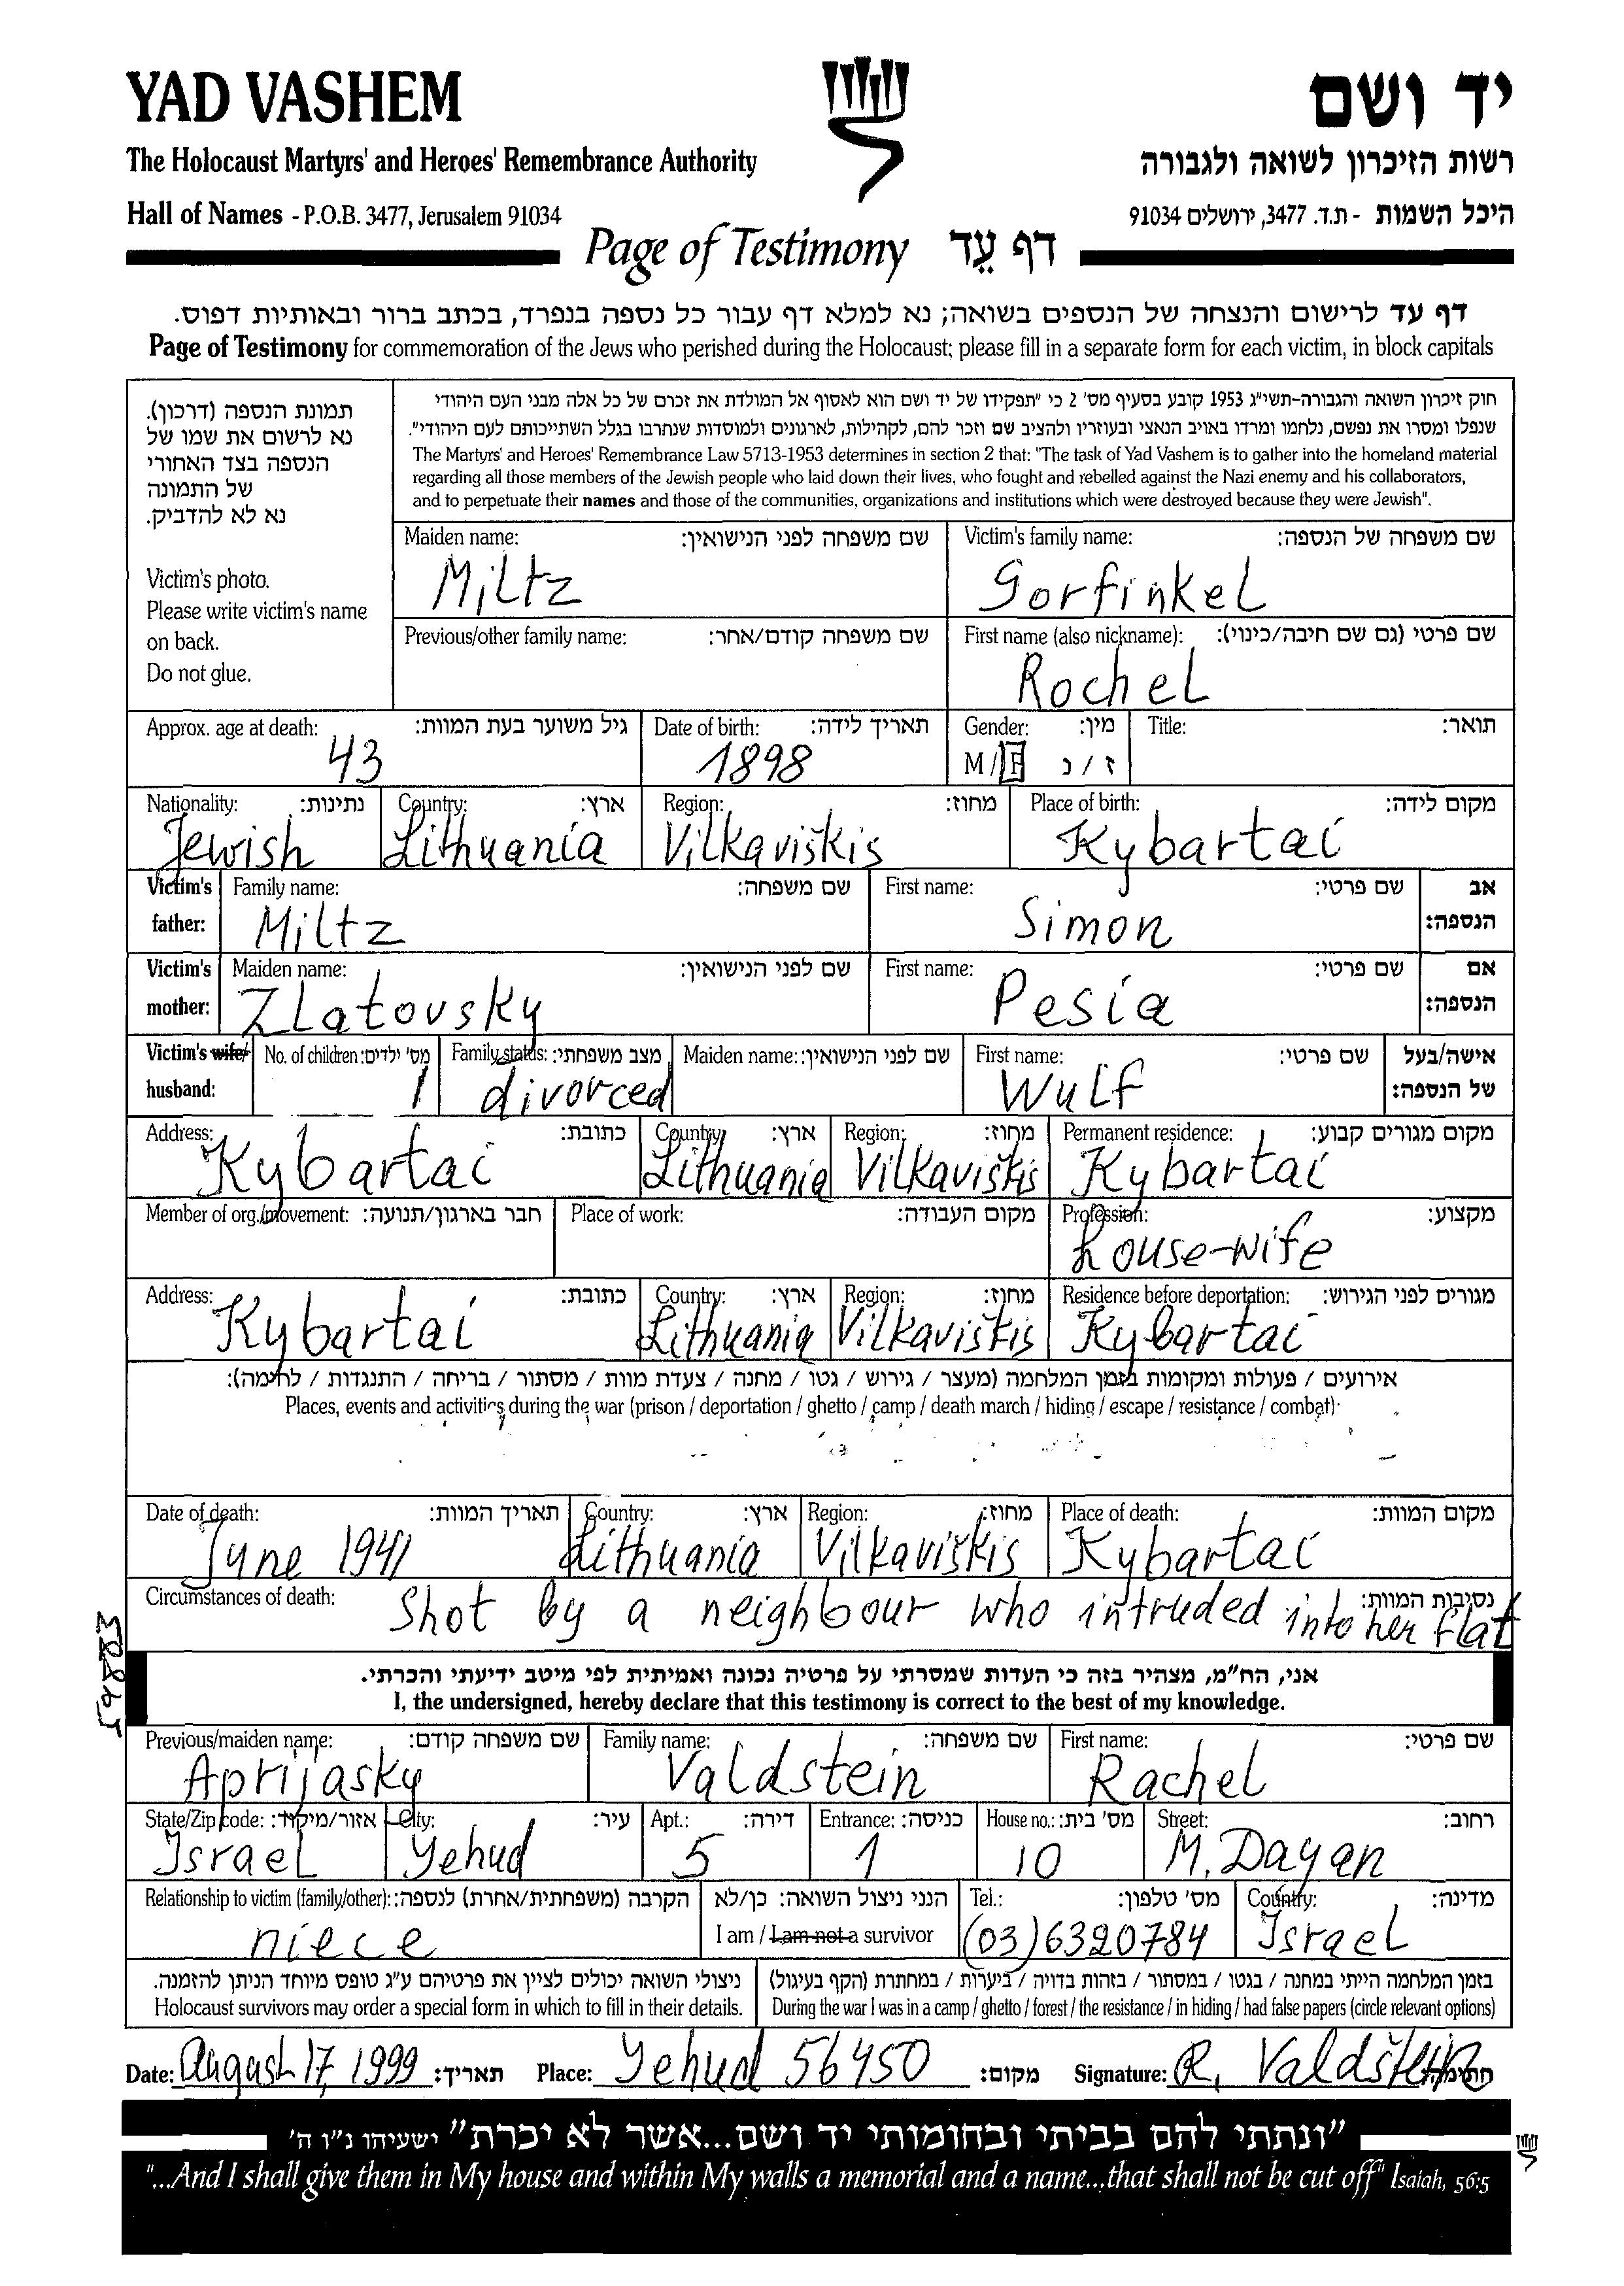 YAD VASHEM
יד ושם
The Holocaust Martyrs' and Heroes' Remembrance Authority
רשות הזיכרון לשואה ולגבורה
Hall of Names - P.O.B. 3477, Jerusalem 91034
היכל השמות - ת.ד. 3477, ירושלים 91034
Page of Testimony דף עֵד
דף עד לרישום והנצחה של הנספים בשואה; נא למלא דף עבור כל נספה בנפרד, בכתב ברור ובאותיות דפוס.
Page of Testimony for commemoration of the Jews who perished during the Holocaust; please fill in a separate form for each victim, in block capitals
תמונת הנספה (דרכון).
נא לרשום את שמו של
הנספה בצד האחורי
של התמונה
נא לא להדביק.
Victim's photo.
Please write victim's name
on back.
Do not glue.
חוק זיכרון השואה והגבורה-תשי"ג 1953 קובע בסעיף מס' 2 כי "תפקידו של יד ושם הוא לאסוף אל המולדת את זכרם של כל אלה מבני העם היהודי
שנפלו ומסרו את נפשם, נלחמו ומרדו באויב הנאצי ובעוזריו ולהציב שם וזכר להם, לקהילות, לארגונים ולמוסדות שנחרבו בגלל השתייכותם לעם היהודי".
The Martyrs' and Heroes' Remembrance Law 5713-1953 determines in section 2 that: "The task of Yad Vashem is to gather into the homeland material
regarding all those members of the Jewish people who laid down their lives, who fought and rebelled against the Nazi enemy and his collaborators,
and to perpetuate their names and those of the communities, organizations and institutions which were destroyed because they were Jewish".
Maiden name: שם משפחה לפני הנישואין: Victim's family name: שם משפחה של הנספה:
Miltz Gorfinkel
Previous/other family name: שם משפחה קודם/אחר: First name (also nickname): שם פרטי (גם שם חיבה/כינוי):
Rochel
Approx. age at death: גיל משוער בעת המוות: Date of birth: תאריך לידה: Gender: מין: Title: תואר:
43 1898 M / F ז / נ
Nationality: נתינות: Country: ארץ: Region: מחוז: Place of birth: מקום לידה:
Jewish Lithuania Vilkaviškis Kybartai
Victim's Family name: שם משפחה: First name: שם פרטי: אב
father: Miltz Simon הנספה:
Victim's Maiden name: שם לפני הנישואין: First name: שם פרטי: אם
mother: Zlatovsky Pesia הנספה:
Victim's wife/ No. of children: מס' ילדים: Family status: מצב משפחתי: Maiden name: שם לפני הנישואין: First name: שם פרטי: אישה/בעל
husband: 1 divorced Wulf של הנספה:
Address: כתובת: Country: ארץ: Region: מחוז: Permanent residence: מקום מגורים קבוע:
Kybartai Lithuania Vilkaviškis Kybartai
Member of org./movement: חבר בארגון/תנועה: Place of work: מקום העבודה: Profession: מקצוע:
house-wife
Address: כתובת: Country: ארץ: Region: מחוז: Residence before deportation: מגורים לפני הגירוש:
Kybartai Lithuania Vilkaviškis Kybartai
אירועים / פעולות ומקומות בזמן המלחמה (מעצר / גירוש / גטו / מחנה / צעדת מוות / מסתור / בריחה / התנגדות / לחימה):
Places, events and activities during the war (prison / deportation / ghetto / camp / death march / hiding / escape / resistance / combat):
Date of death: תאריך המוות: Country: ארץ: Region: מחוז: Place of death: מקום המוות:
June 1941 Lithuania Vilkaviškis Kybartai
Circumstances of death: נסיבות המוות:
Shot by a neighbour who intruded into her flat
אני, הח"מ, מצהיר בזה כי העדות שמסרתי על פרטיה נכונה ואמיתית לפי מיטב ידיעתי והכרתי.
I, the undersigned, hereby declare that this testimony is correct to the best of my knowledge.
Previous/maiden name: שם משפחה קודם: Family name: שם משפחה: First name: שם פרטי:
Aprijasky Valdstein Rachel
State/Zip code: אזור/מיקוד: City: עיר: Apt.: דירה: Entrance: כניסה: House no.: מס' בית: Street: רחוב:
Israel Yehud 5 1 10 M. Dayan
Relationship to victim (family/other): הקרבה (משפחתית/אחרת) לנספה: הנני ניצול השואה: כן/לא Tel.: מס' טלפון: Country: מדינה:
niece I am / I am not a survivor (03)6320784 Israel
ניצולי השואה יכולים לציין את פרטיהם ע"ג טופס מיוחד הניתן להזמנה. בזמן המלחמה הייתי במחנה / בגטו / במסתור / בזהות בדויה / ביערות / במחתרת (הקף בעיגול)
Holocaust survivors may order a special form in which to fill in their details. During the war I was in a camp / ghetto / forest / the resistance / in hiding / had false papers (circle relevant options)
Date: August 17, 1999 תאריך: Place: Yehud 56450 מקום: Signature: R. Valdštein חתימה:
"ונתתי להם בביתי ובחומותי יד ושם...אשר לא יכרת" ישעיהו נ"ו ה'
"...And I shall give them in My house and within My walls a memorial and a name...that shall not be cut off" Isaiah, 56:5